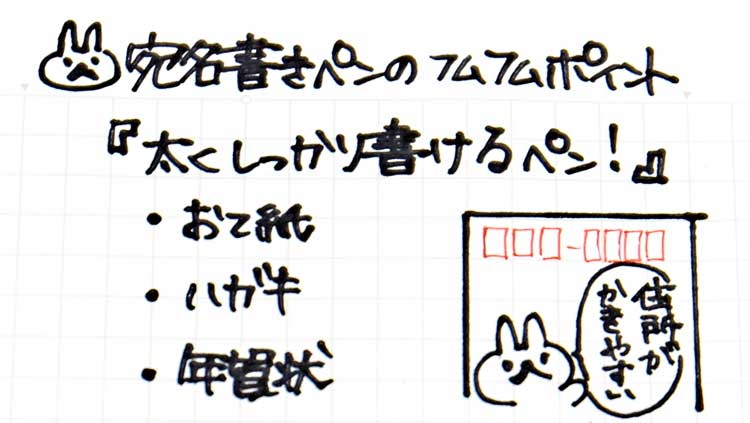 宛名書きペンのフムフムポイント
『太くしっかり書けるペン！』
・おて紙
・ハガキ
・年賀状
住所が
かきやすい